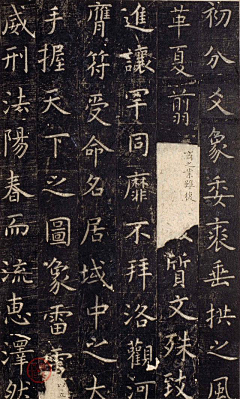 初分爻象委裘垂拱之風
革夏翦商之業雖復質文殊致
進讓罕同靡不拜洛觀河
膺符受命名居域中之大
手握天下之圖象雷電以立
威刑法陽春而流惠澤然